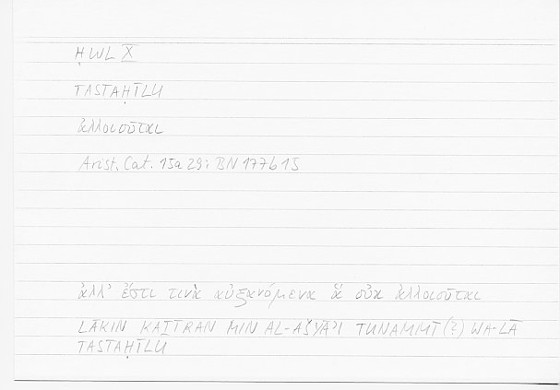 ḤWL X̅
TASTAḤĪLU
ἀλλοιοῦται
Arist. Cat. 15a 29; BN 177b15
ἀλλ' ἔστι τινὰ αὐξανόμενα ἃ οὐκ ἀλλοιοῦται
LĀKIN KAṮĪRAN MIN AL-AŠYĀʾI TUNAMMĪ (?) WA-LĀ
TASTAḤĪLU